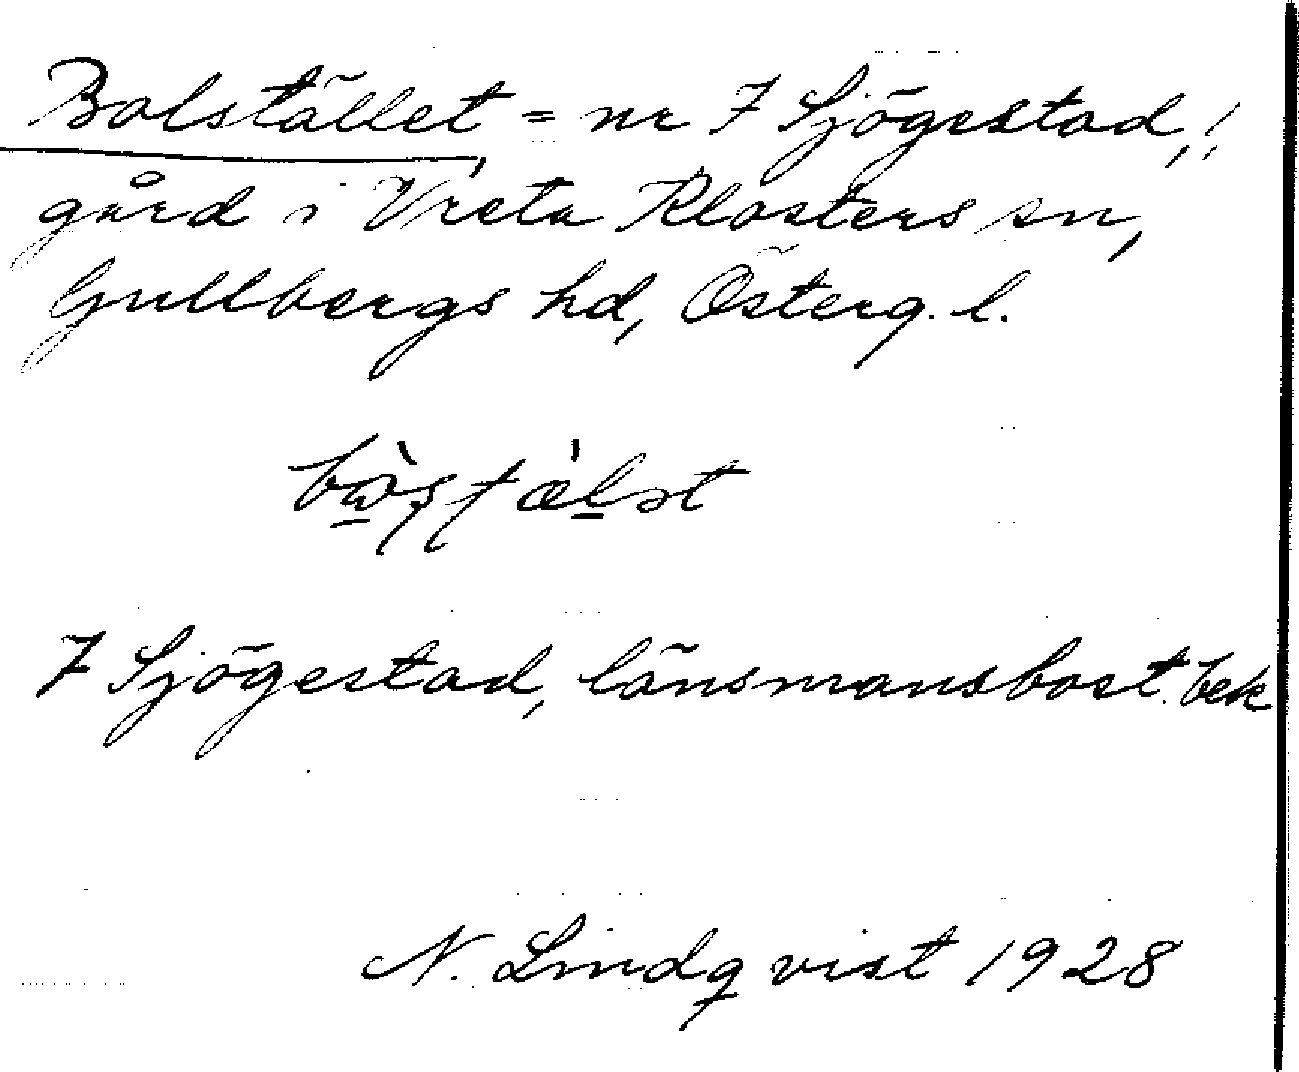 Bolstället = nr 7 Sjögestad,!
gård i Vreta Klosters sn,
Gullbergs hd, Österg. l.
7 Sjögestad, länsmansbost. bek
N. Lindqvist 1928